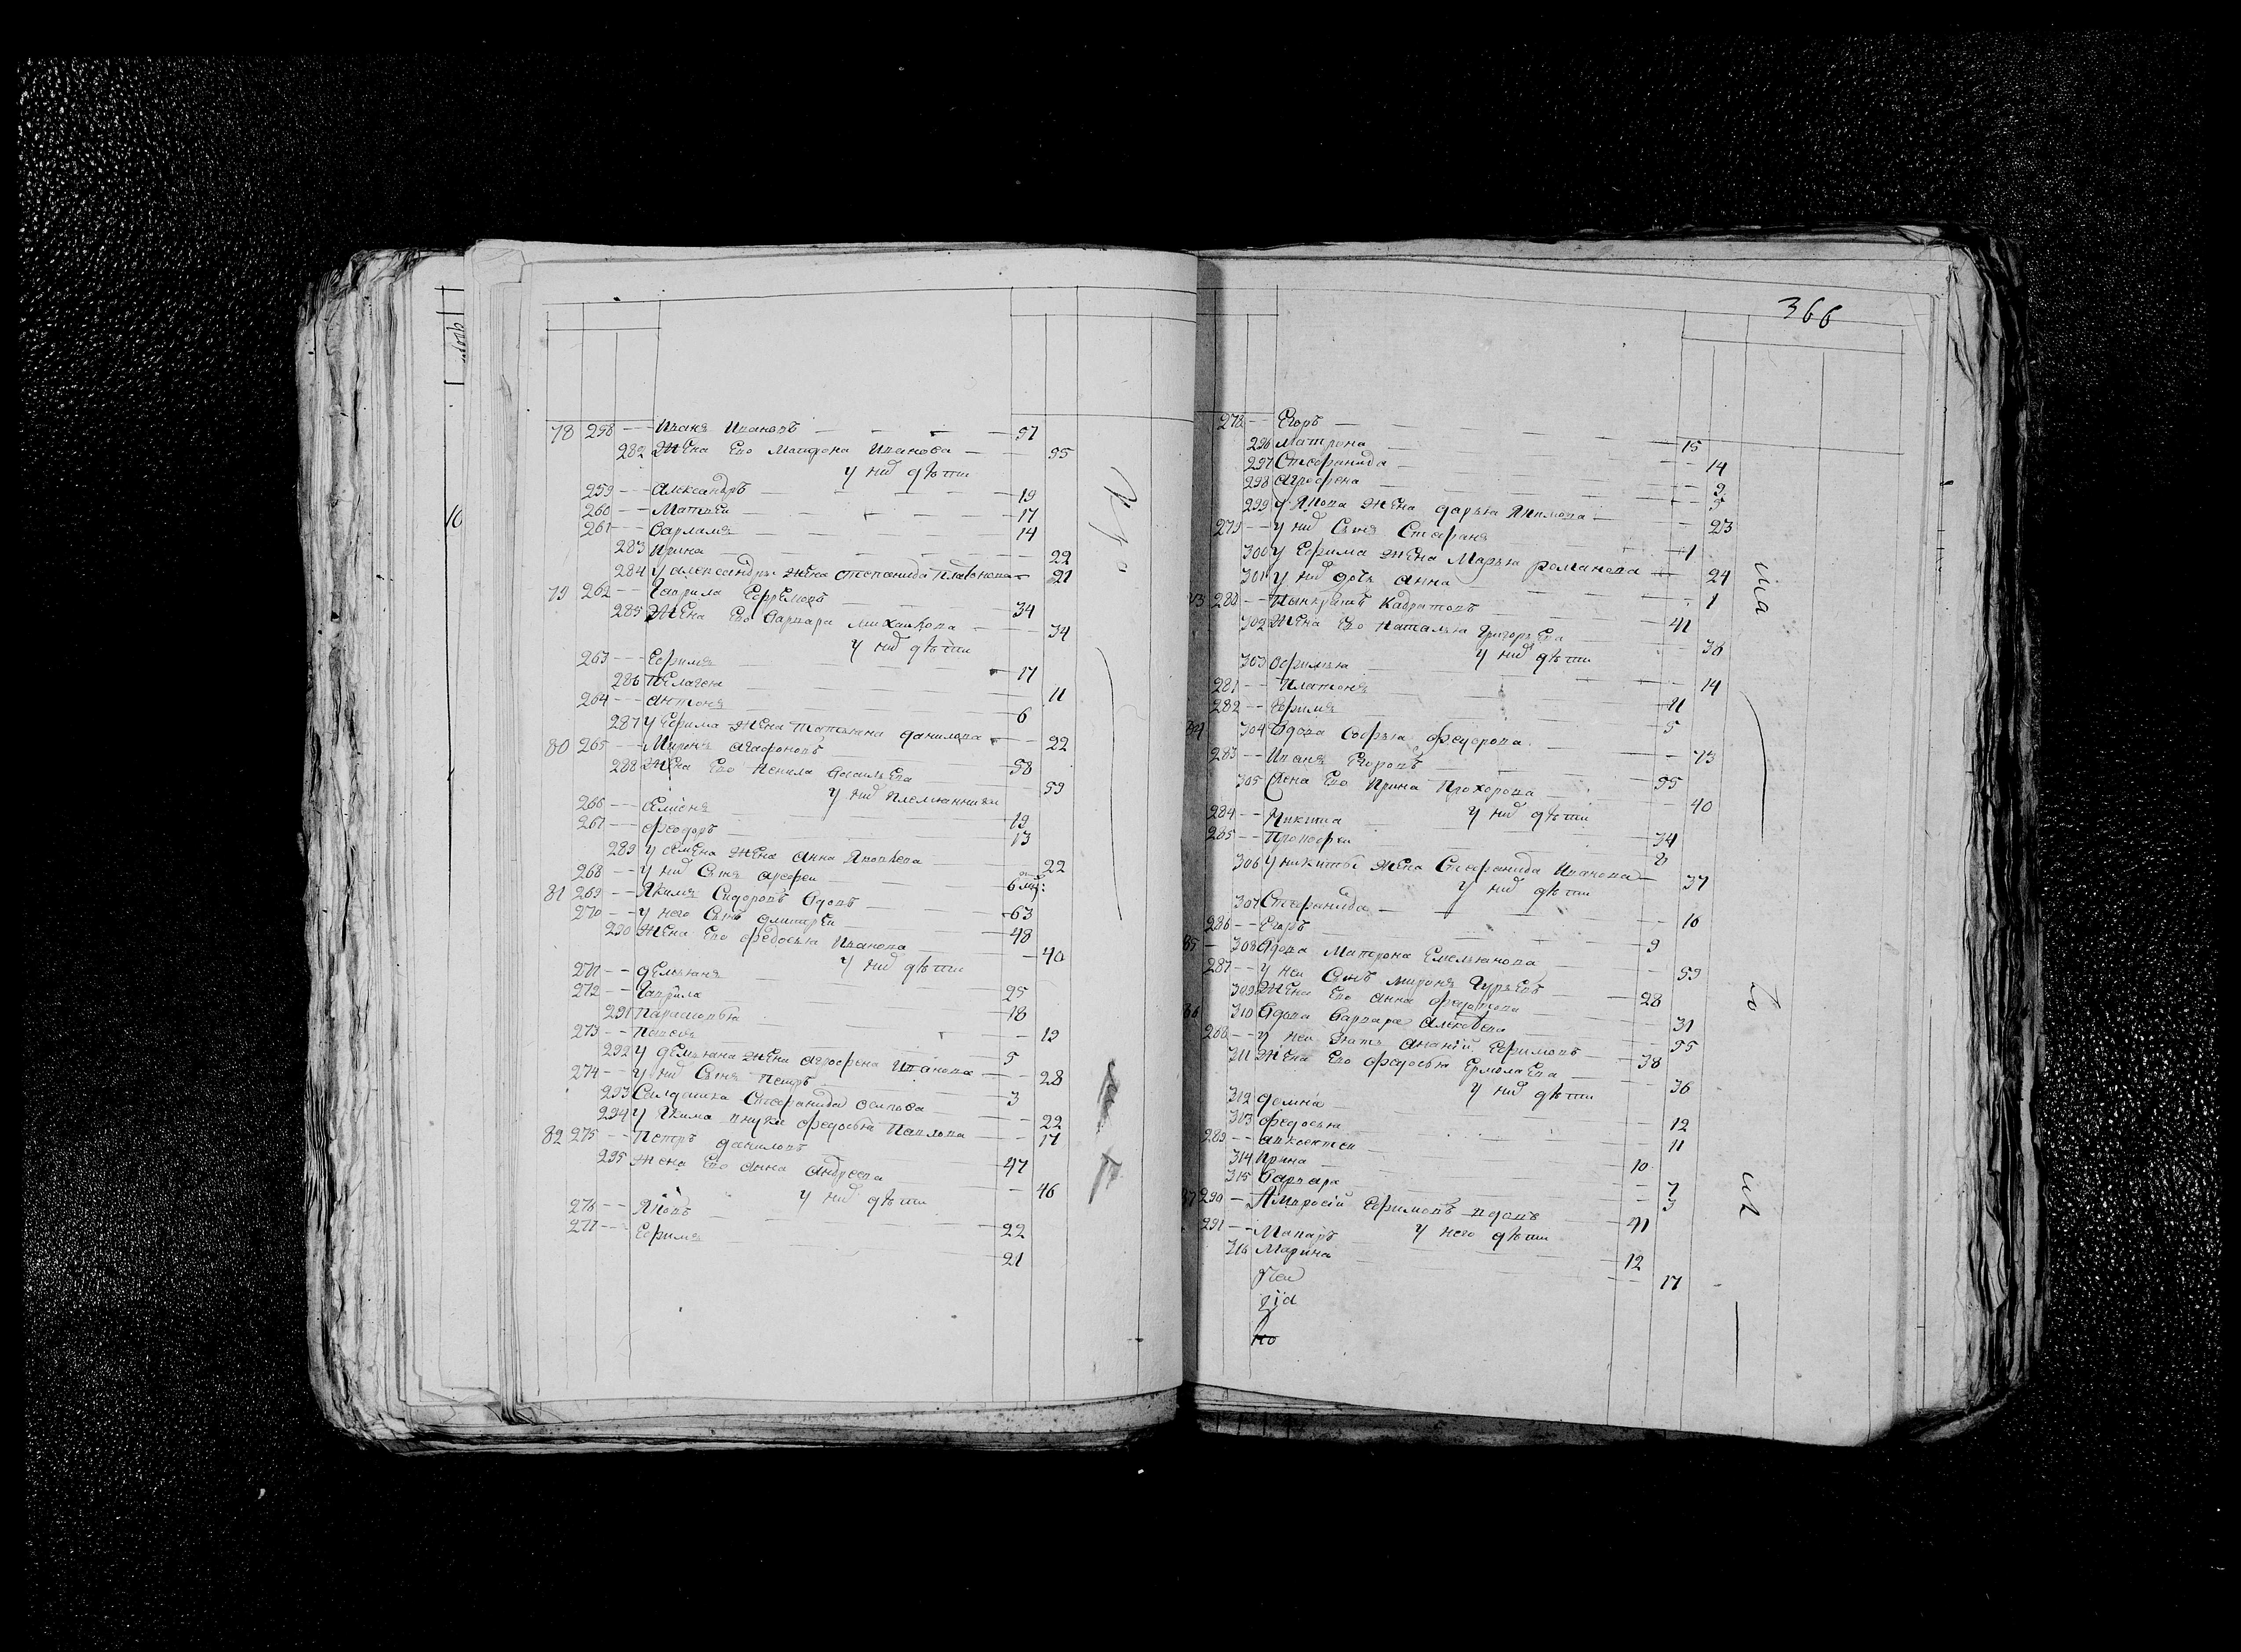 78 258 -- Иванъ Ивановъ 57
282 Жена Его Матрона Иванова 55
у них дѣти
259 -- Александръ 19
260 -- Матвѣи 17
261 -- Варламъ 14
283 Ирина 22
284 у александра жена степанида Платонова 21
79 262 -- Гаврила Ефремовъ 34
285 Жена Его Варвара михаилова 34
у них дѣти
263 -- Ефримъ 17
286 Пелагея 11
264 -- антонъ 6
287 у Ефрима жена татьяна данилова 22
80 265 -- Миронъ агафоновъ 58
288 Жена Его Ненила васильЕва 59
у них племянники
266 -- Семенъ 19
267 -- феодоръ 13
289 у семена жена анна Яковлева 22
268 -- у них сынъ арефеи 6 мц:
81 269 -- Якимъ Сидоровъ вдовъ 63
270 -- у него сынъ дмитреи 48
290 Жена Его федосья Иванова 40
у них дѣти
271 -- дЕмьянъ 25
272 -- Гаврила 18
291 парасковья 12
273 -- 5
292 у дЕмьяна жЕна агрофена Иванова 28
274 -- у них сынъ петръ 3
293 Стефанида осипова 22
294 у Якима внука федосья Павлова 17
82 275 -- Петръ даниловъ 47
295 жена Его анна андреева 46
у них дѣти
276 -- Яковъ 22
277 -- Ефримъ 21
366
278 -- Егоръ 15
296 Матрона 14
297 Стефанида 9
298 агрофена 5
299 у Якова жЕна дарья Якимова 23
279 -- у них сынъ Стефанъ 1
300 у Ефрима жЕна Марья романова 24
301 у них дочь анна 1
83 280 -- 41
302 ЖЕна Его наталья григорьЕва 38
у них дѣти
303 Офимья 14
281 -- Платонъ 11
282 -- Ефримъ 5
84 304 Вдова Софья федорова 73
283 -- Иванъ Егоровъ 55
305 жена Его Ирина Прохорова 40
у них дѣти
284 -- Никита 34
285 -- Прокофеи 8
306 у никиты жЕна Стефанида Иванова 37
у них дѣти
307 Стефанида 10
286 -- Егоръ 9
85 -- 308 вдова Матрона Емельянова 59
287 -- у неи сынъ миронъ гурьЕвъ 28
309 жЕна Его анна федотова 31
86 310 вдова варвара алексеева 55
288 -- у неи зять ананий Ефримовъ 38
311 жЕна Его федосья ЕрмолаЕва 36
у них дѣти
312 домна 12
313 федосья 11
289 -- авксентеи 10
314 Ирина 7
315 варвара 3
87 290 -- Амвросий Ефримовъ вдовъ 41
у него дѣти
291 -- Макаръ 12
316 Марина 17